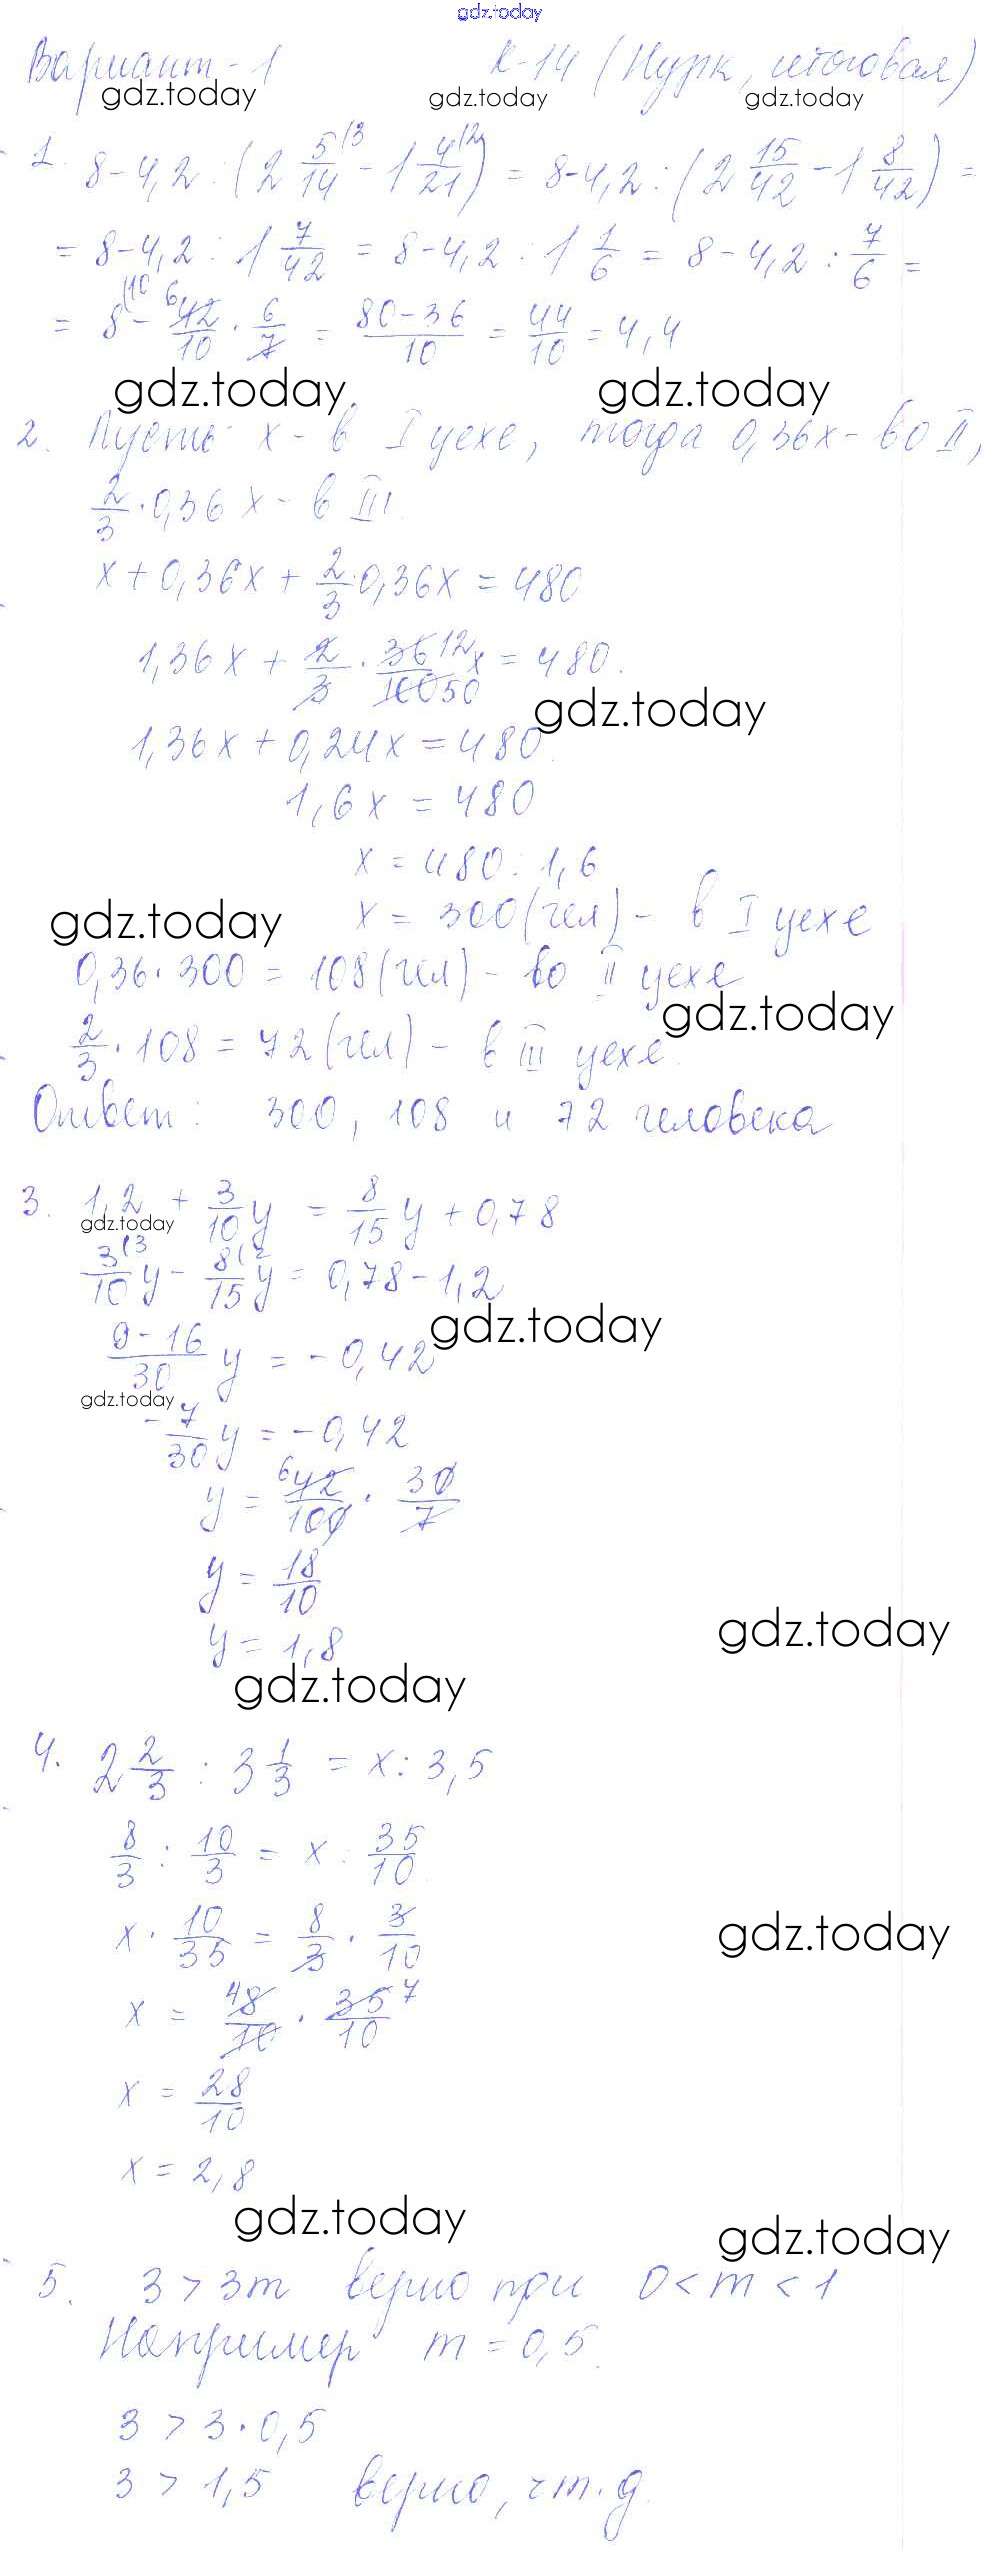 gdz.today
Вариант-1 К-14 (Нурк, итоговая)
gdz.today gdz.today gdz.today
1. 8-4,2 : (2 5/14 (3 - 1 4/21 (2) = 8-4,2 : (2 15/42 - 1 8/42) =
= 8-4,2 : 1 7/42 = 8-4,2 : 1 1/6 = 8-4,2 : 7/6 =
= 8 (10 - 6 42/10 · 6/7 = 80-36/10 = 44/10 = 4,4
gdz.today gdz.today
2. Пусть x - в I цехе, тогда 0,36x - во II,
2/3 · 0,36 x - в III.
x + 0,36x + 2/3 · 0,36x = 480
1,36x + 2/3 · 36 12/100 50 x = 480.
gdz.today
1,36x + 0,24x = 480.
1,6x = 480
x = 480 : 1,6
gdz.today x = 300 (чел) - в I цехе
0,36 · 300 = 108 (чел) - во II цехе
gdz.today
2/3 · 108 = 72 (чел) - в III цехе.
Ответ: 300, 108 и 72 человека
3. 1,2 + 3/10 y = 8/15 y + 0,78
gdz.today
3(3/10 y - 8(2/15 y = 0,78 - 1,2
gdz.today
9-16/30 y = -0,42
gdz.today
-7/30 y = -0,42
y = 6 42/100 · 30/7
y = 18/10
gdz.today
y = 1,8
gdz.today
4. 2 2/3 : 3 1/3 = x : 3,5
8/3 : 10/3 = x : 35/10
x · 10/35 = 8/3 · 3/10
gdz.today
x = 4 8/10 · 35 7/10
x = 28/10
x = 2,8
gdz.today gdz.today
5. 3 > 3m верно при 0 < m < 1
Например m = 0,5.
3 > 3 · 0,5
3 > 1,5 верно, чт.д.